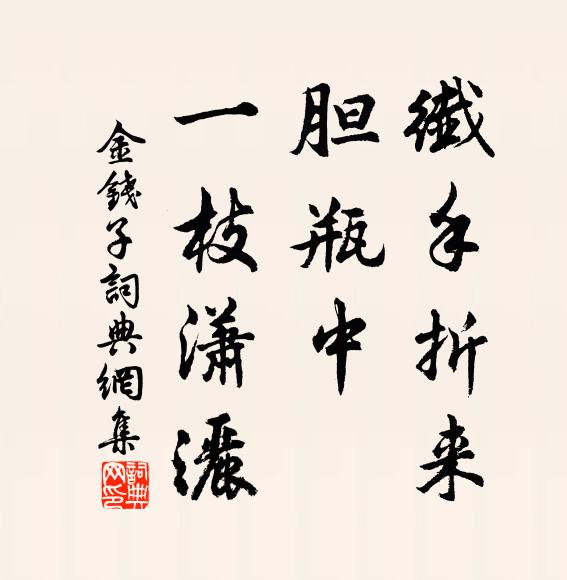 纖手折来
胆瓶中
一枝潇灑
金錢子詞典網集
詞典网印